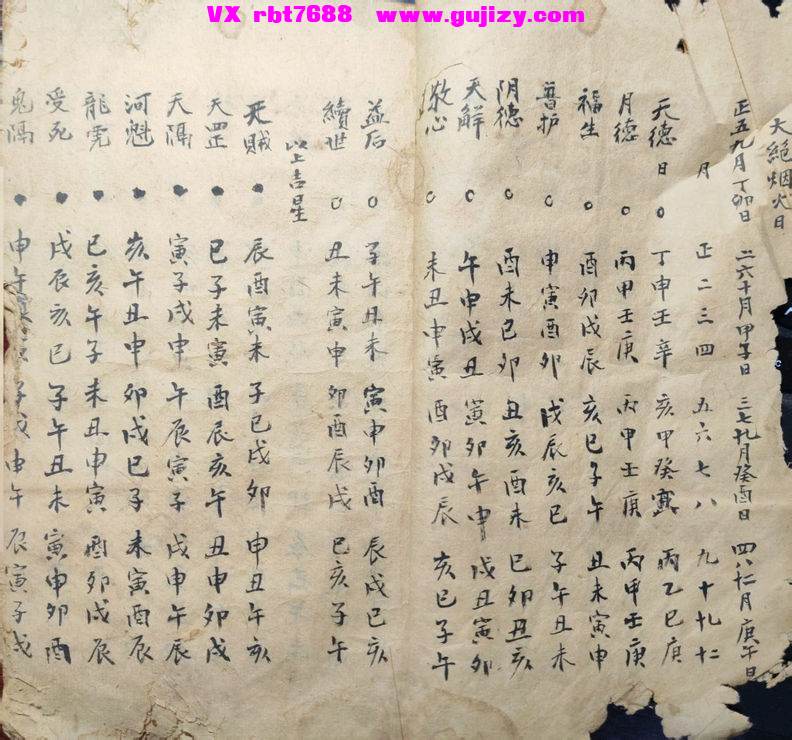 VX rbt7688 www.gujizy.com
大絕烟火日
正五九月丁卯日 二六十月甲子日 三七十一月癸酉日 四八十二月庚午日
月 正二三四 五六七八 九十十一十二
天德日○ 丁申壬辛 亥甲癸寅 丙乙巳庚
月德○ 丙甲壬庚 丙甲壬庚 丙甲壬庚
福生○ 酉卯戌辰 亥巳子午 丑未寅申
普护○ 申寅酉卯 戌辰亥巳 子午丑未
阴德○ 酉未巳卯 丑亥酉未 巳卯丑亥
天解○ 午申戌丑 寅卯午申 戌丑寅卯
敬心○ 未丑申寅 酉卯戌辰 亥巳子午
益后○ 子午丑未 寅申卯酉 辰戌巳亥
續世○ 丑未寅申 卯酉辰戌 巳亥子午
以上吉星
天賊● 辰酉寅未 子巳戌卯 申丑午亥
天罡● 巳子未寅 酉辰亥午 丑申卯戌
天隔● 寅子戌申 午辰寅子 戌申午辰
河魁● 亥午丑申 卯戌巳子 未寅酉辰
龍虎● 巳亥午子 未丑申寅 酉卯戌辰
受死● 戌辰亥巳 子午丑未 寅申卯酉
鬼隔● 申午 子戌申午 辰寅子戌